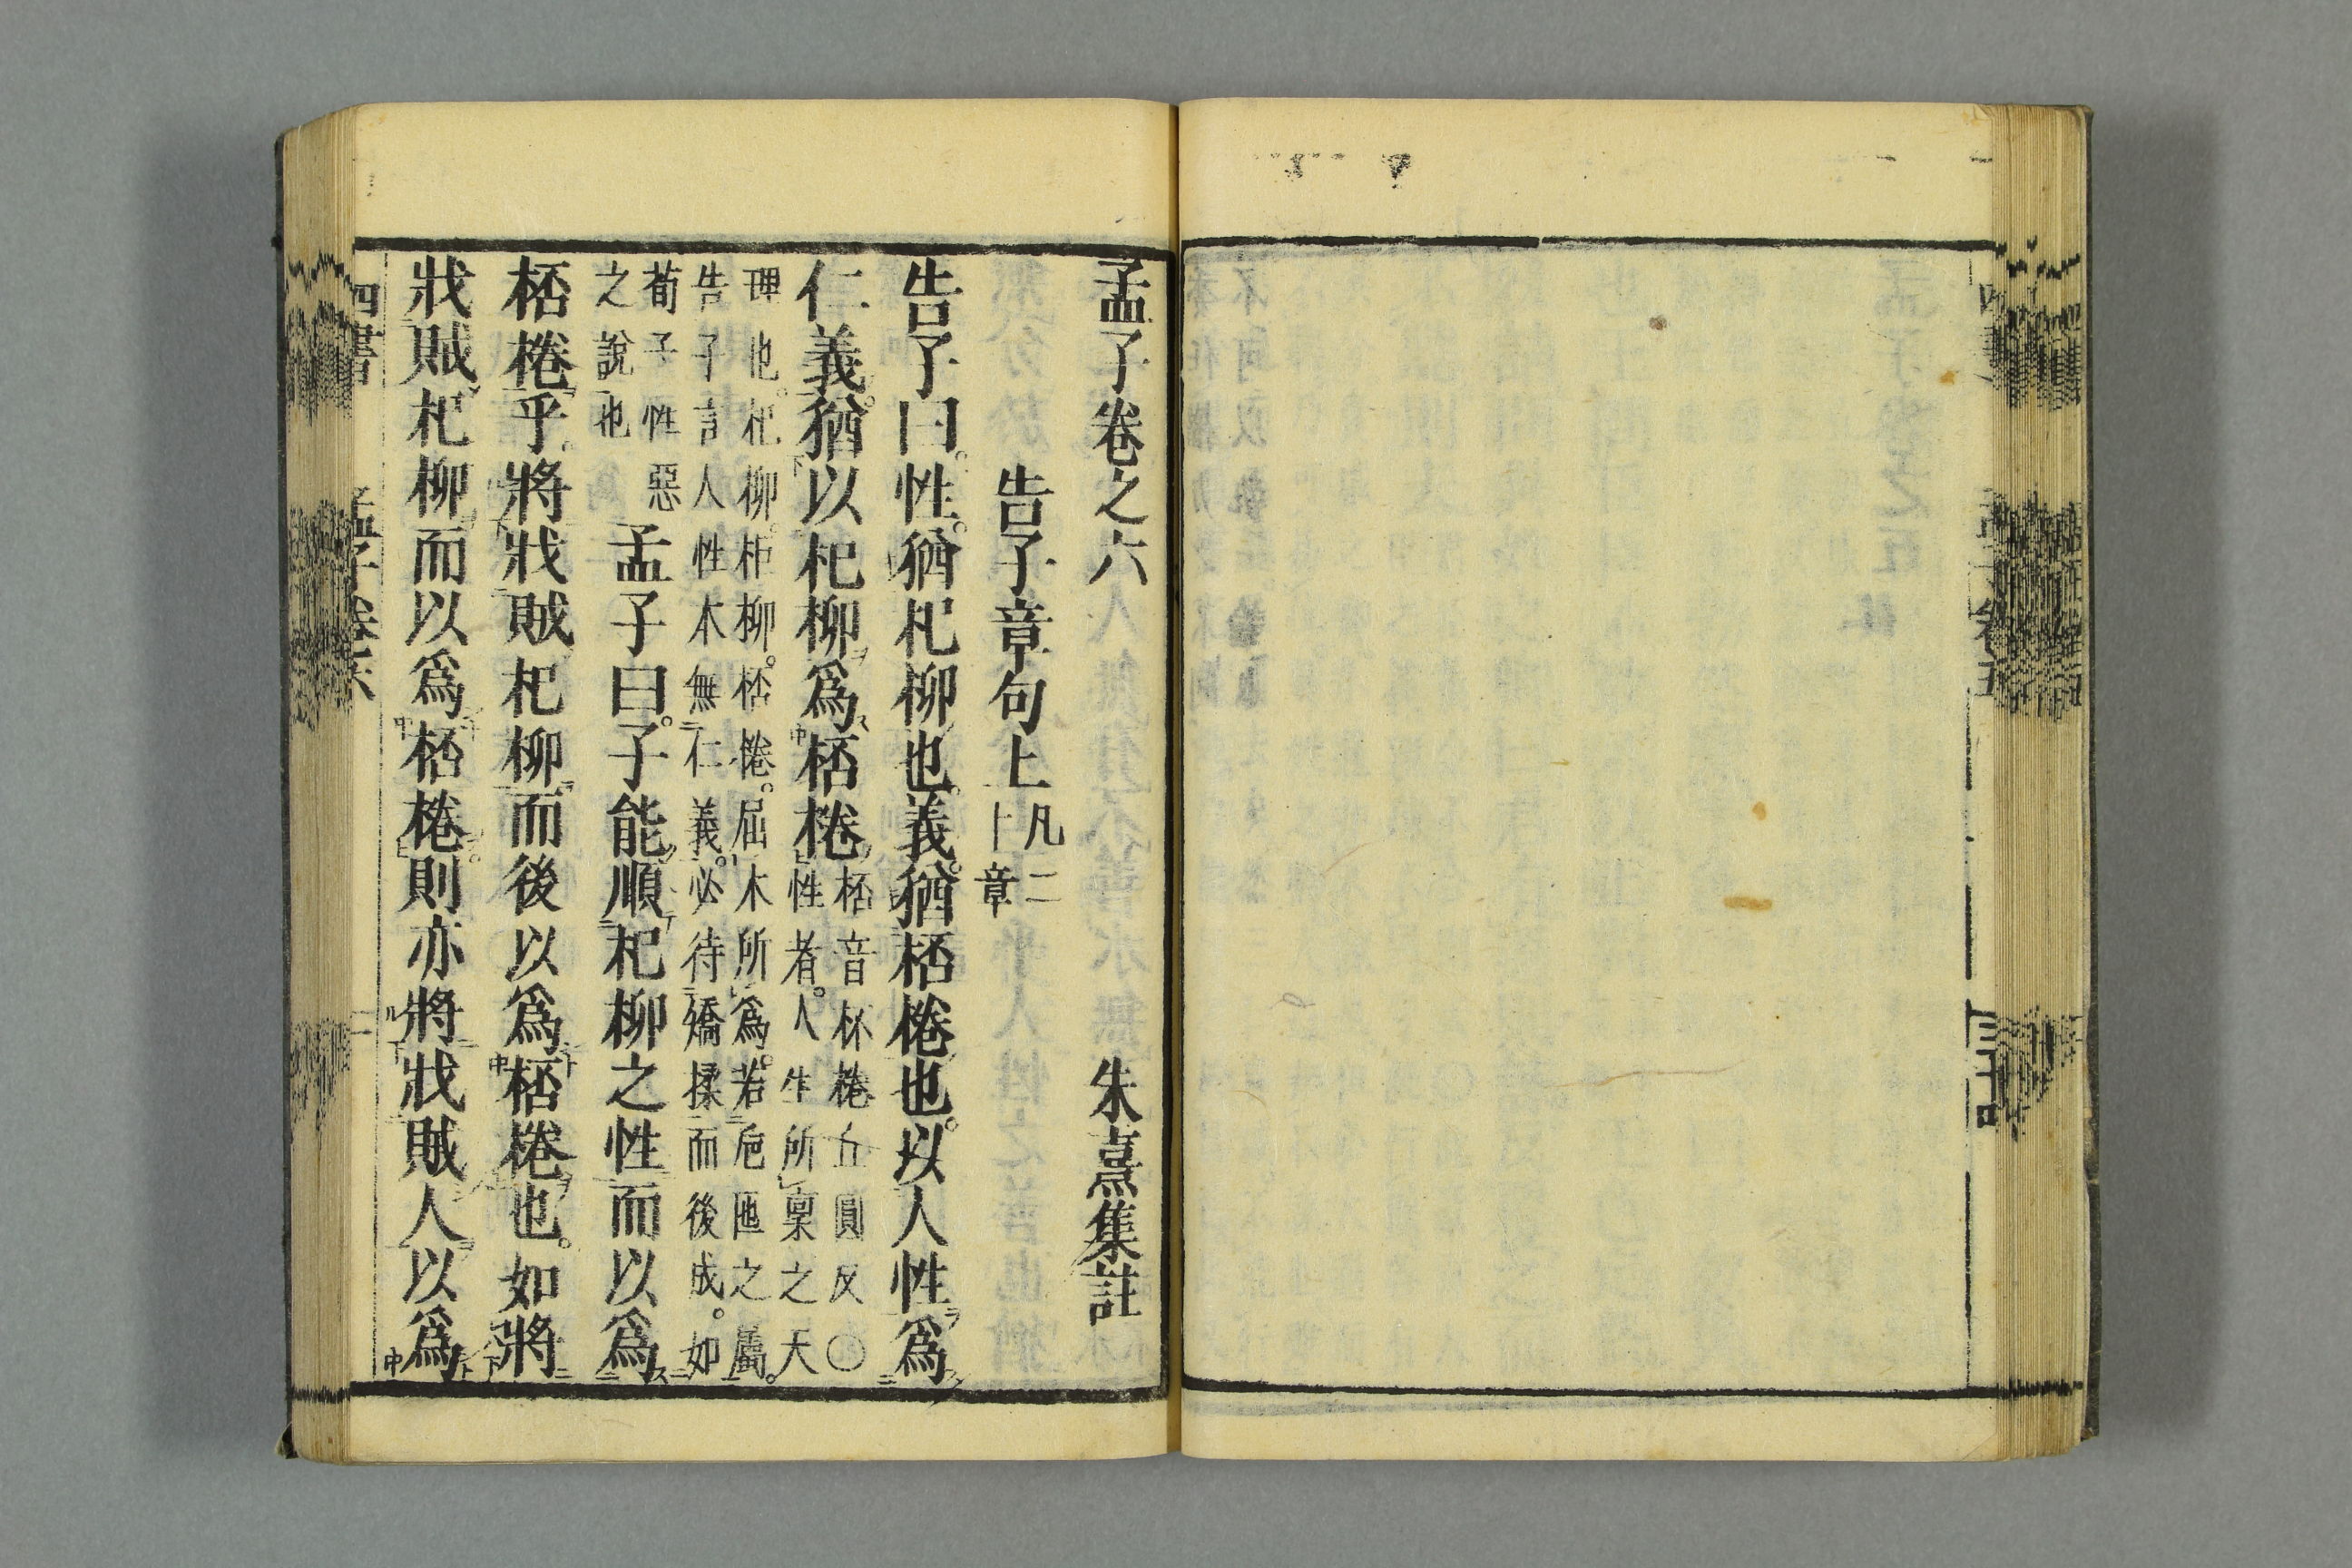 孟子卷之六　朱熹集註
告子章句上
凡二
十章
告子曰。性。猶杞柳也。義。猶桮棬也。以人性爲
仁義。猶以杞柳爲桮棬
桮音杯棬丘圓反○
性者。人生所稟之天
理也。杞柳。柜柳。桮棬。屈木所爲。若巵匜之屬。
告子言人性木無仁義。必待矯揉而後成。如
荀子性惡
之說也
孟子曰。子能順杞柳之性而以爲
桮棬乎。將戕賊杞柳而後以爲桮棬也。如將
戕賊杞柳而以爲桮棬。則亦將戕賊人以爲
四書　孟子卷六　一